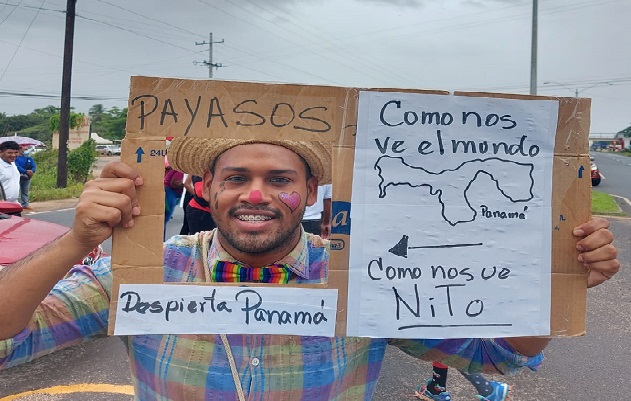 PAYASOS
Despierta Panamá
Como nos
ve el mundo
Panamá
Como nos ve
NiTo